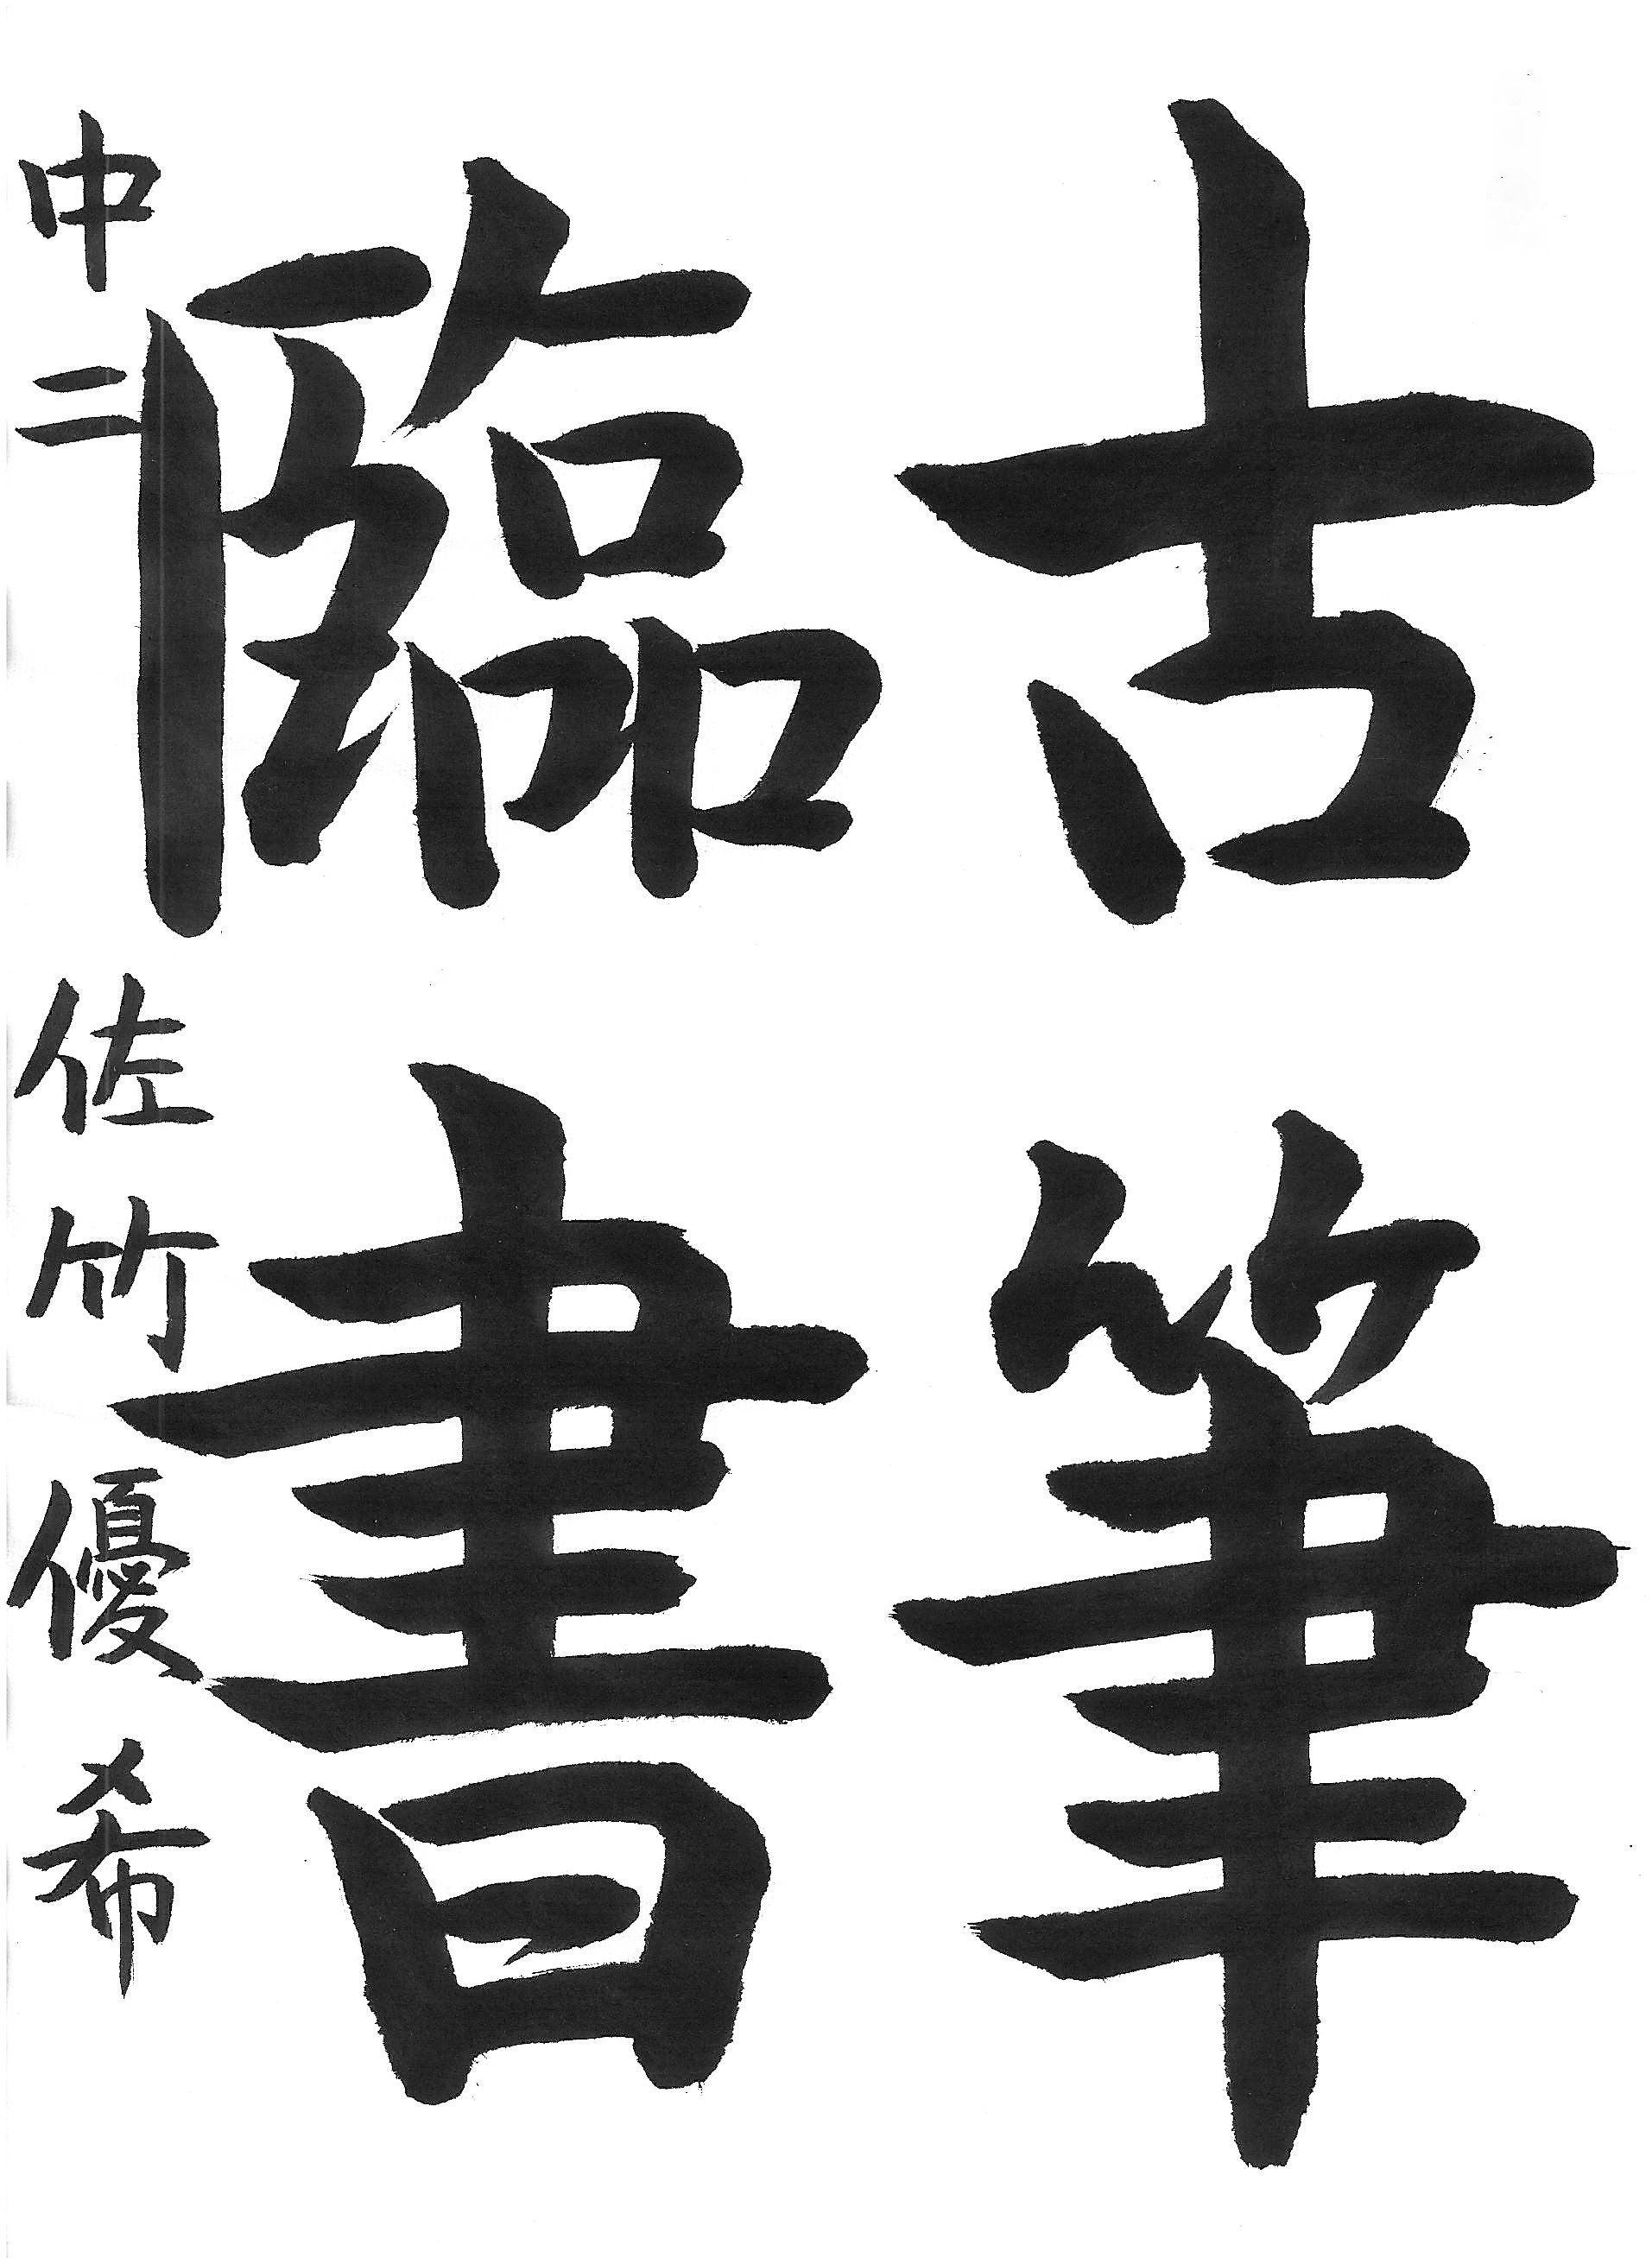 古筆
臨書
中二 佐竹優希